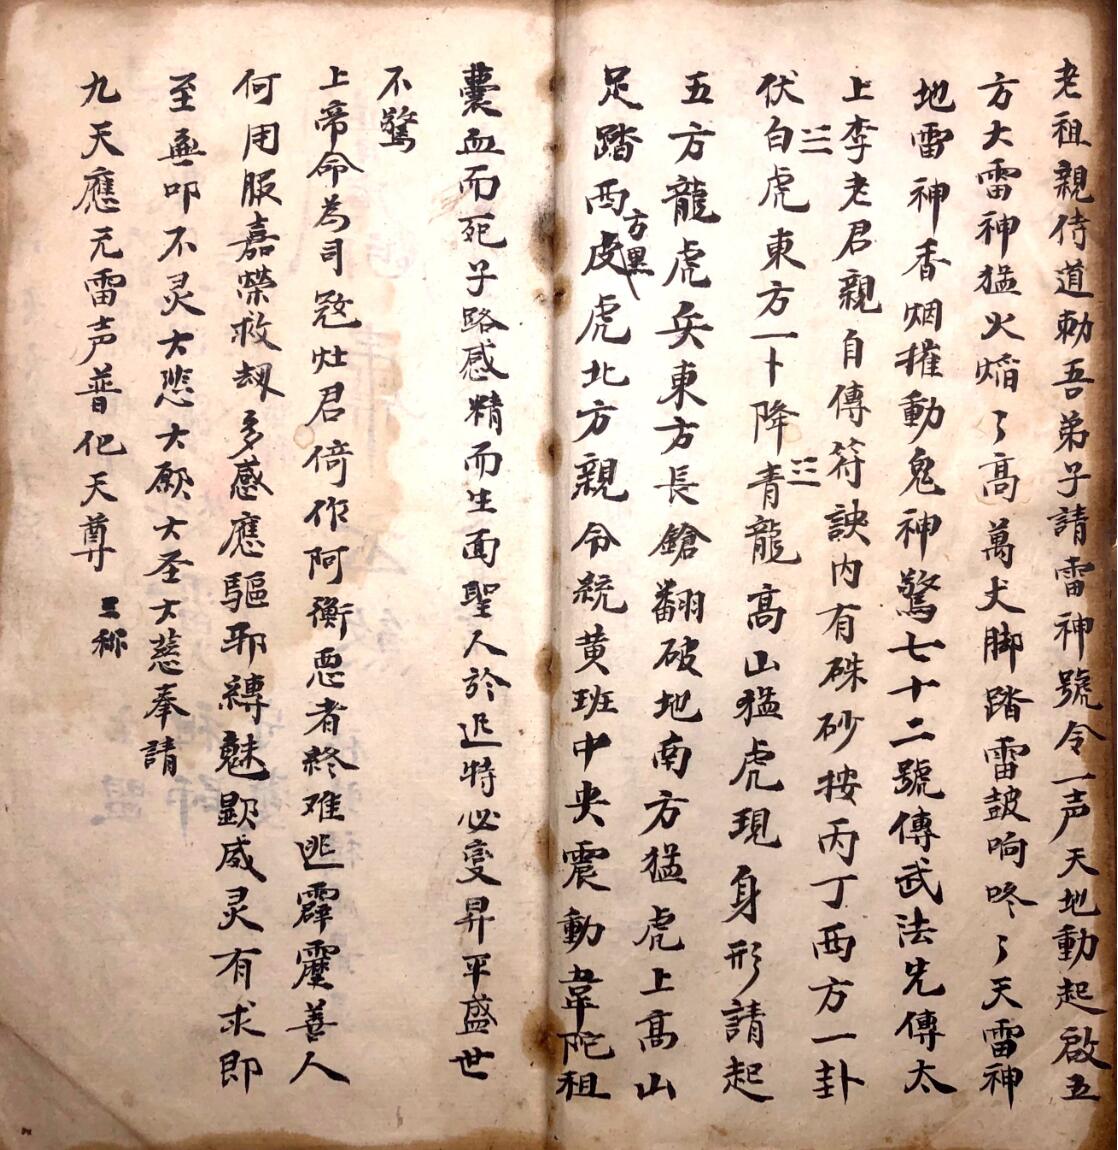 老祖親侍道勅吾弟子請雷神號令一声天地動起啟五
方大雷神猛火焰々高萬丈脚踏雷鼓响咚々天雷神
地雷神香烟擁動鬼神驚七十二號傳武法先傳太
上李老君親自傳符訣内有硃砂按丙丁西方一卦
☱
伏白虎東方一卜降青龍高山猛虎現身形請起
☳
五方龍虎兵東方長鎗翻破地南方猛虎上髙山
足踏西皮虎北方親令統黄班中央震動韋陀祖
方黑
囊血而死子路感精而生面聖人於迅特必变昇平盛世
不驚
上帝命為司冦灶君倚作阿衡悪者終难逃霹靂善人
何用服嘉榮救劫多感應驅邪縛魅顕威灵有求即
至無叩不灵大悲大愿大圣大慈奉請
九天應元雷声普化天尊 三称